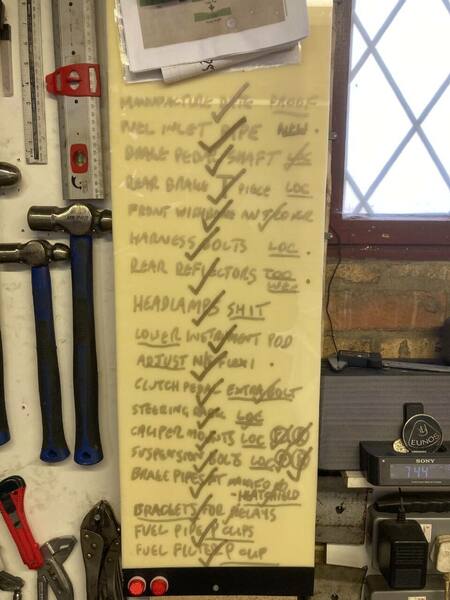 MANUFACTURE PROOF
FUEL INLET PIPE NEW
BRAKE PEDAL SHAFT LOC
REAR BRAKE T PIECE LOC
FRONT
HARNESS BOLTS LOC
REAR REFLECTORS TOO
HEADLAMPS SHIT
LOWER INSTRUMENT POD
ADJUST FLEXI
CLUTCH PEDAL EXTRA BOLT
STEERING RACK LOC
CALIPER MOUNTS LOC
SUSPENSION BOLTS LOC
BRAKE PIPES AT MANIFOLD
- HEATSHIELD
BRACKETS FOR RELAYS
FUEL PIPE P CLIPS
FUEL FILTER P CLIP
EUNOS
SONY
7:44